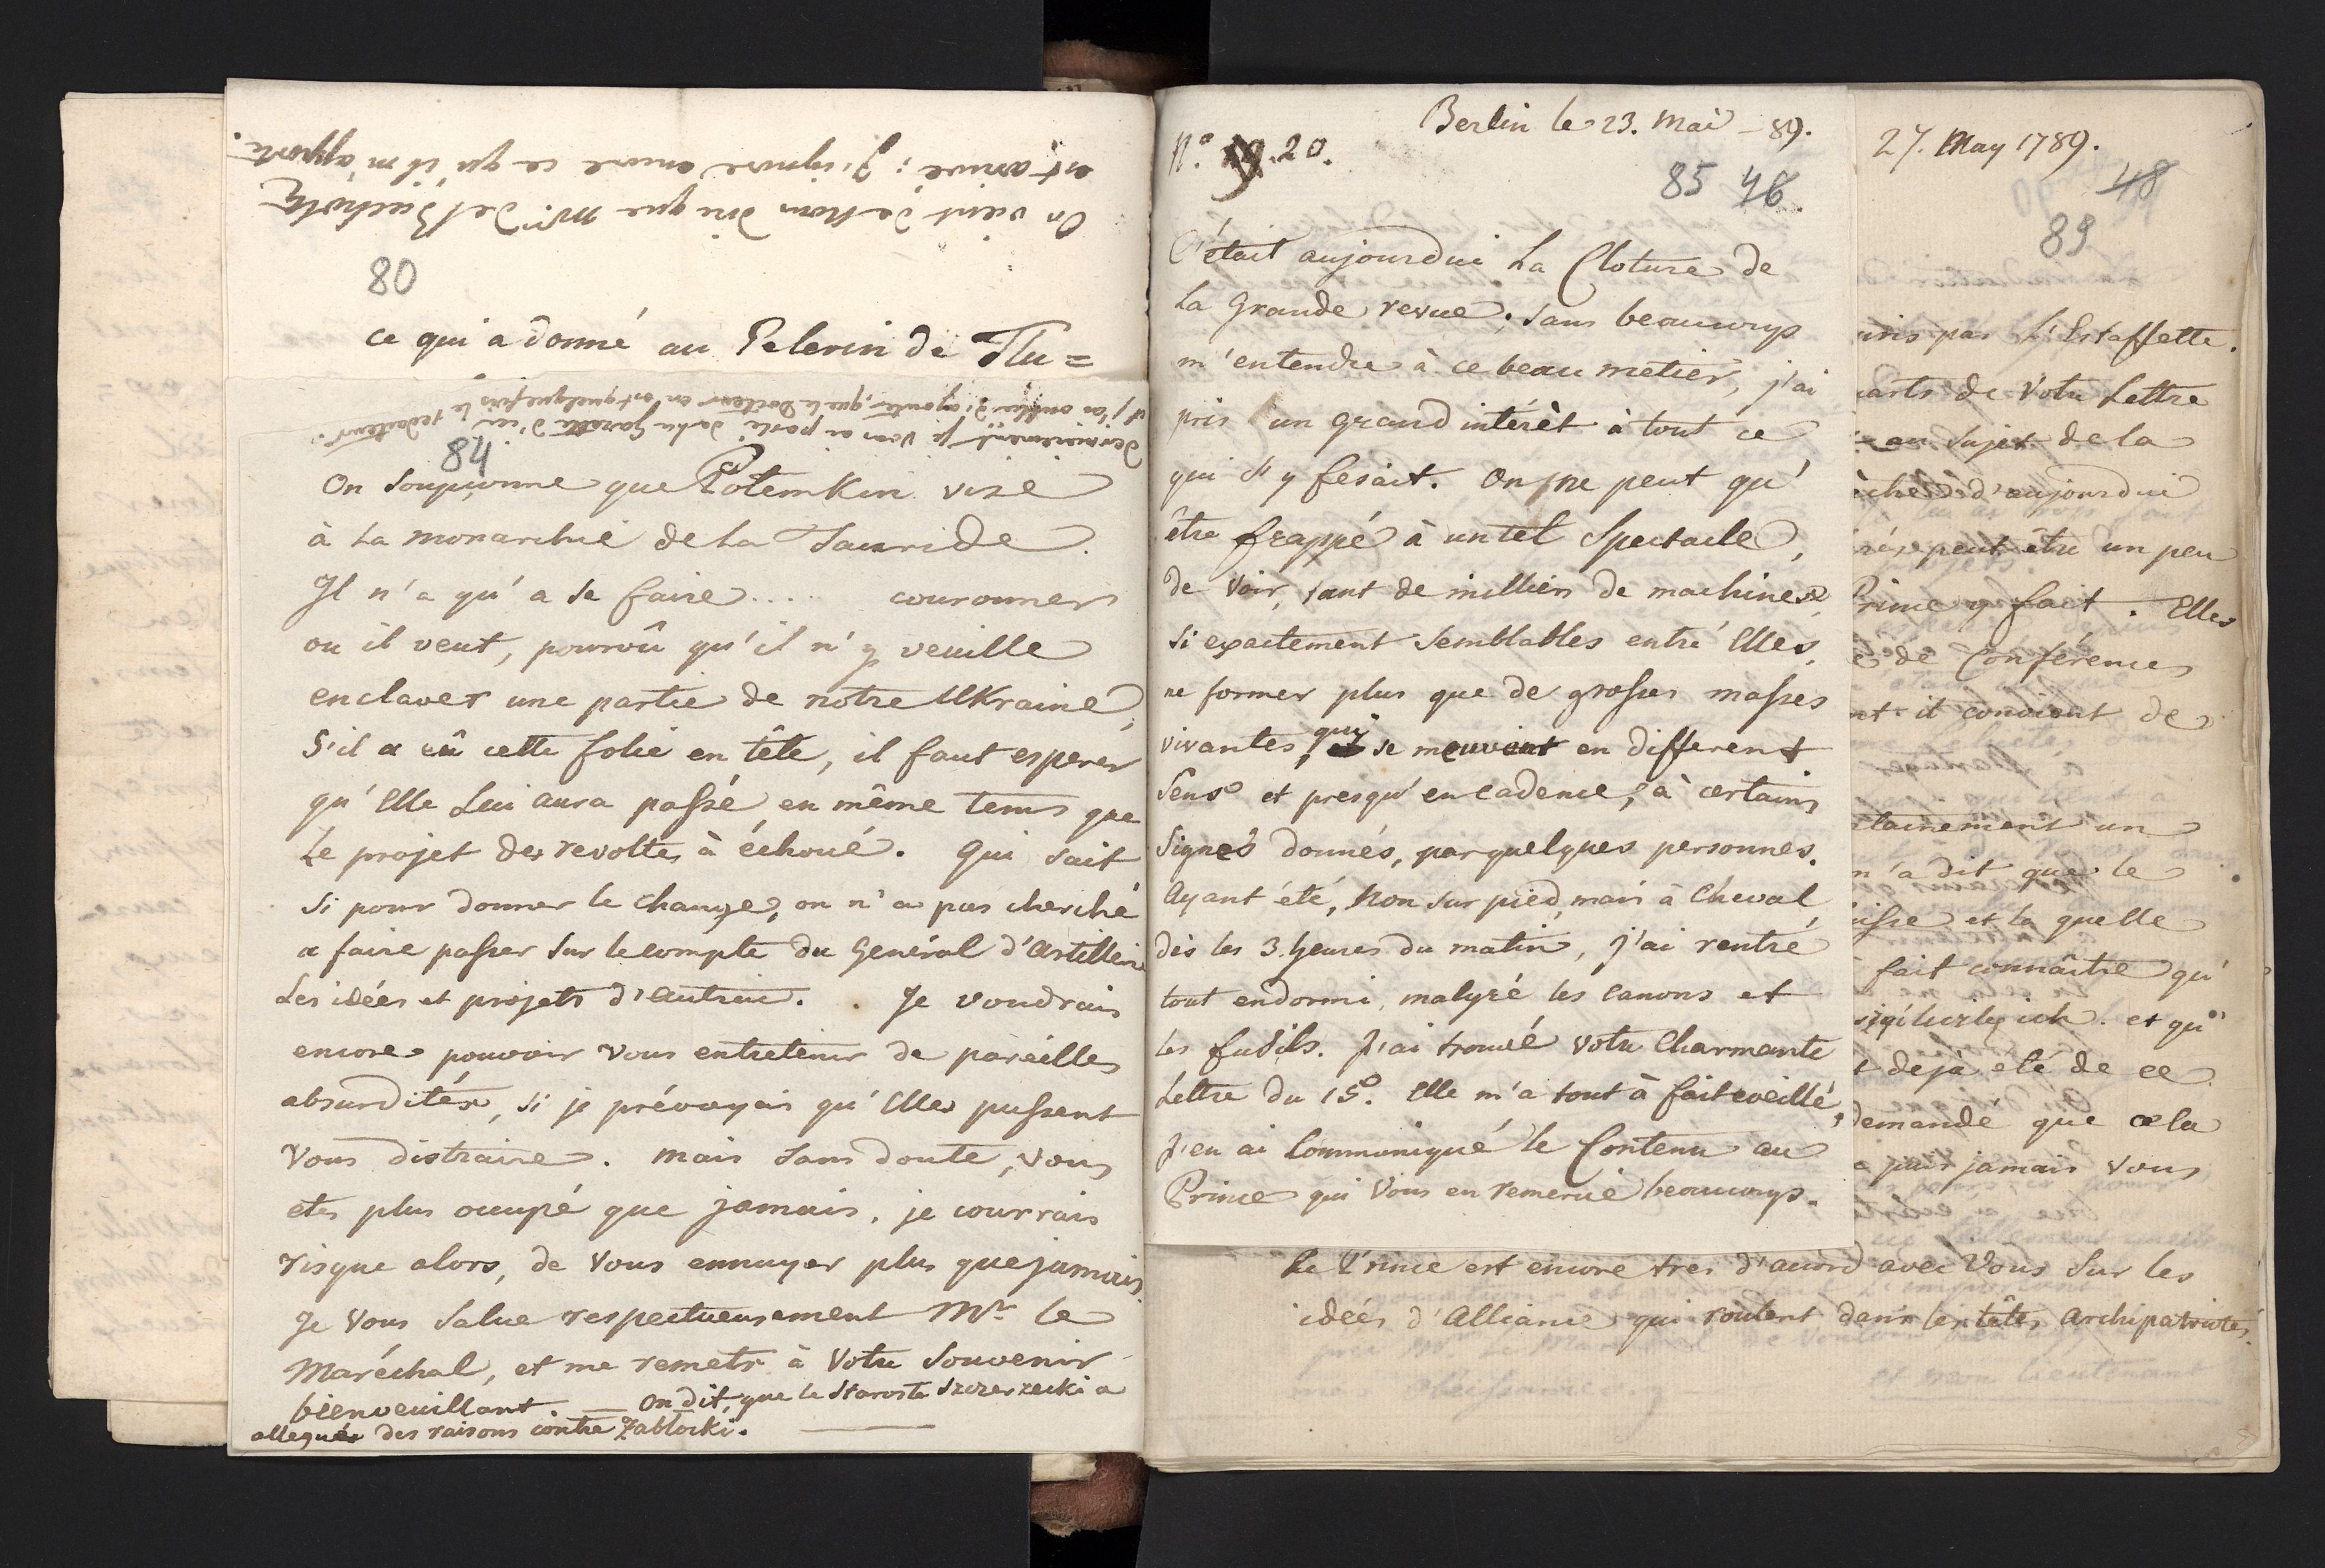 On vient de nous dire que Mr. de Buchholtz
est arrivé; J'ignore encore ce qu'il m'apporte.
80
ce qui a donné au Pelerin de Tlu=
dernierement je vous ai parlé de la Gazette d'ici
et j'ai oublié d'ajouter, que le Docteur en est quelquefois le redacteur.
84
On soupçionne que Potemkin vise
à la monarchie de la Tauride.
Il n'a qu'a se faire .... couronner
ou il veut, pourvû qu'il n'y veuille
enclaver une partie de notre Ukraine,
S'il a eû cette folie en tête, il faut esperer
qu'Elle Lui aura passé en même tems que
Le projet des revoltes à échoué. Qui sait
si pour donner le change, on n'a pas cherché
a faire passer sur le compte du Général d'Artillerie
Les idées et projets d'autrui. Je voudrais
encore pouvoir vous entretenir de pareilles
absurdités, si je prévoyais qu'Elles pussent
Vous distraire. mais sans doute, vous
etes plus occupé que jamais, je courrais
risque alors, de vous ennuyer plus que jamais
Je Vous salue respectueusement Mr. le
Maréchal, et me remets à Votre souvenir
bienveuillant. — On dit, que le Staroste Szczerzecki a
allegués des raisons contre Zabłocki. —
Berlin le 23. Mai - 89.
N.° 20.
85 46
C'était aujourdui La Cloture de
La Grande revue; sans beaucoup
m'entendre à ce beau metier, j'ai
pris un grand intérèt à tout ce
qui s'y fesait. On ne peut qu'
être frappé à un tel Spectacle,
de voir, tant de milliers de machines,
si exactement semblables entré Elles,
ne former plus que de grosses masses
vivantes, qui se meuvent en different
sens et presqu'en cadence, à certains
signes donnés, par quelques personnes.
Ayant été, non sur pied, mais à cheval,
dès les 3. heures du matin, j'ai rentré
tout endormi, malgré les canons et
les fusils. J'ai trouvé votre charmante
Lettre du 15.° Elle m'a tout à fait eveillé,
J'en ai Communiqué le Contenu au
Prince qui Vous en remercie beaucoup.
27. May 1789.
48
89
par l'Estaffette.
de Votre Lettre
au sujet de la
d'aujourdui
peut être un peu
Prince y fait. Elles
de Conférences
il convient de
un
m'a dit que le
et la quelle
fait connaître qu'
et qu'
dejà eté de ce
demandé que cela
jamais Vous
Le Prince est encore tres d'acord avec Vous sur les
idées d'Alliance qui roulent dans les têtes Archipatriotes.